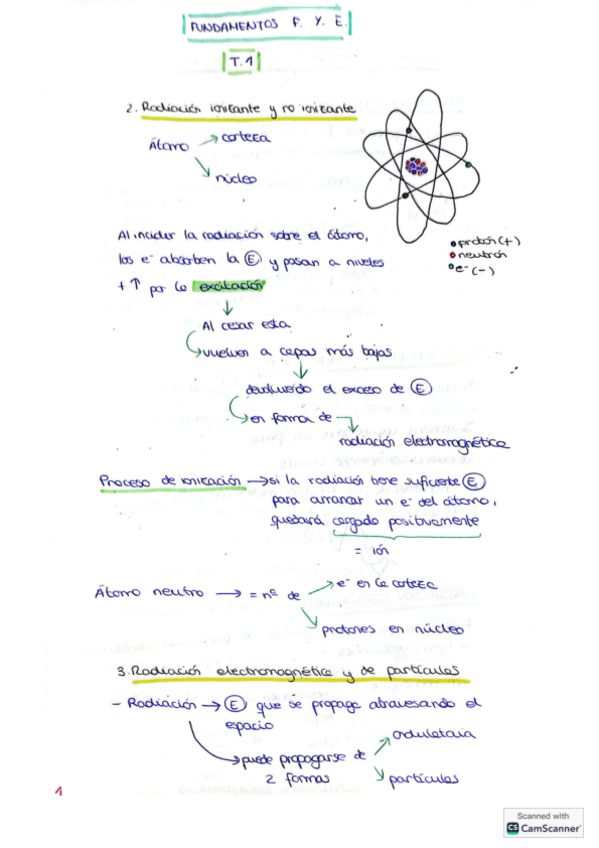 FUNDAMENTOS F. Y. E.
T.1
2. Radiación ionizante y no ionizante
Átomo → corteza
↘ núcleo
● protón (+)
● neutrón
● e⁻ (-)
Al incidir la radiación sobre el átomo,
los e⁻ absorben la Ⓔ y pasan a niveles
+ ↑ por la excitación
↓
Al cesar esta
↪ vuelven a capas más bajas
↓
devolviendo el exceso de Ⓔ
↪ en forma de ↴
radiación electromagnética
Proceso de ionización → si la radiación tiene suficiente Ⓔ
para arrancar un e⁻ del átomo,
quedará cargado positivamente
= ión
Átomo neutro → = nº de ↗ e⁻ en la corteza
↘ protones en núcleo
3. Radiación electromagnética y de partículas
- Radiación → Ⓔ que se propaga atravesando el
espacio
↘ puede propagarse de
2 formas
↗ ondulatoria
↘ partículas
1
Scanned with
CS CamScanner